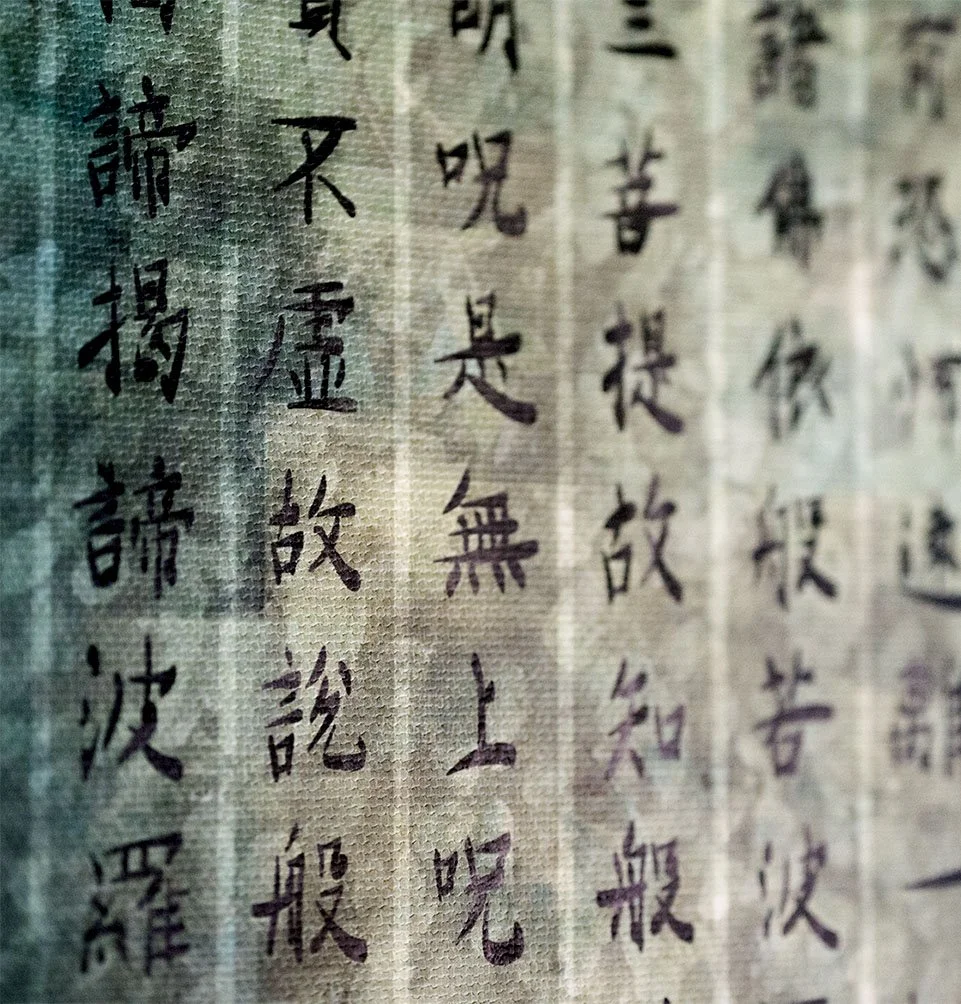 有恐怖遠離一
諸佛依般若波
三菩提故知般
明呪是無上呪
實不虛故說般
諦揭諦波羅